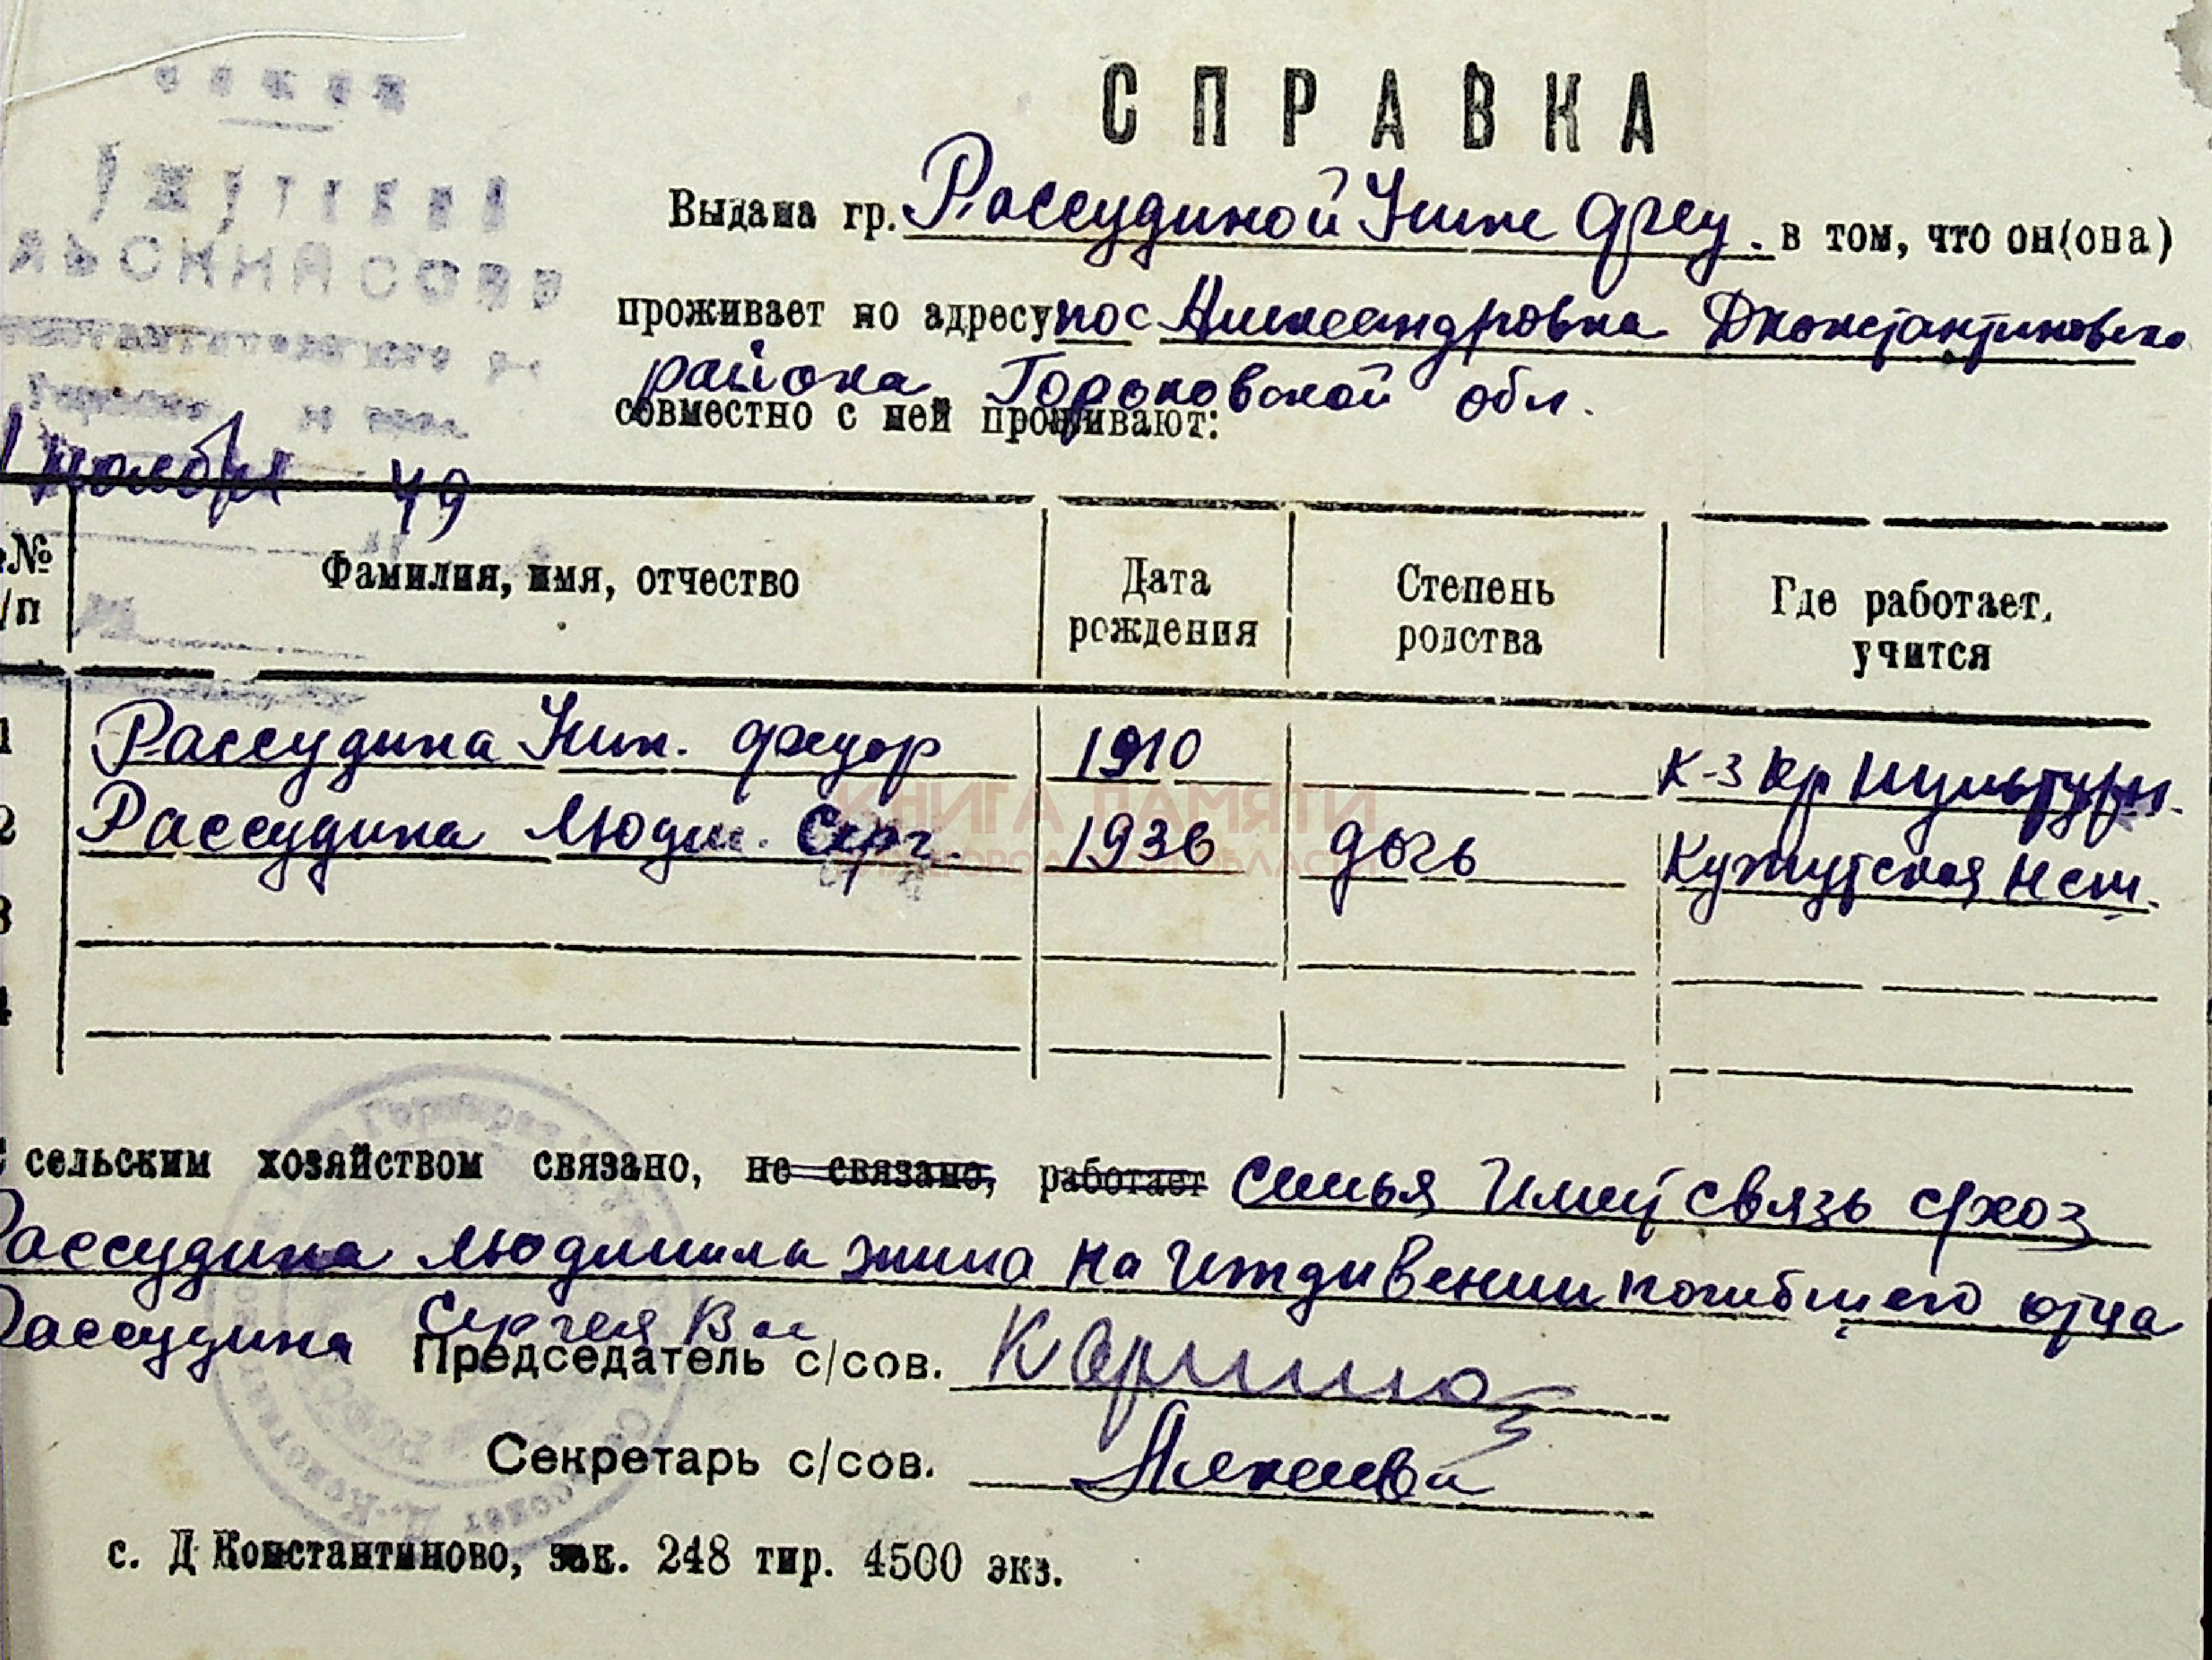 СПРАВКА
Выдана гр. Рассудиной Нине Фёд. в том, что он(она)
проживает по адресу пос Александровка Дконстантиновско
района Горьковской обл.
совместно с ней проживают:
ноября 49
№ /п Фамилия, имя, отчество Дата рождения Степень родства Где работает, учится
1 Рассудина Нин. Федор 1910 к-з Кр Культура.
2 Рассудина Людм. Серг 1936 дочь Кужутская нсш.
3
4
сельским хозяйством связано, не связано, работает семья имеит связь с/хоз
Рассудина Людмила жила на иждивении погибшего отца
Рассудина Сергея Вас
Председатель с/сов.
Секретарь с/сов.
с. Д Константиново, зак. 248 тир. 4500 экз.
КНИГА ПАМЯТИ